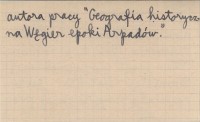 autora pracy "Geografia historycz
na Węgier epoki Arpadów."